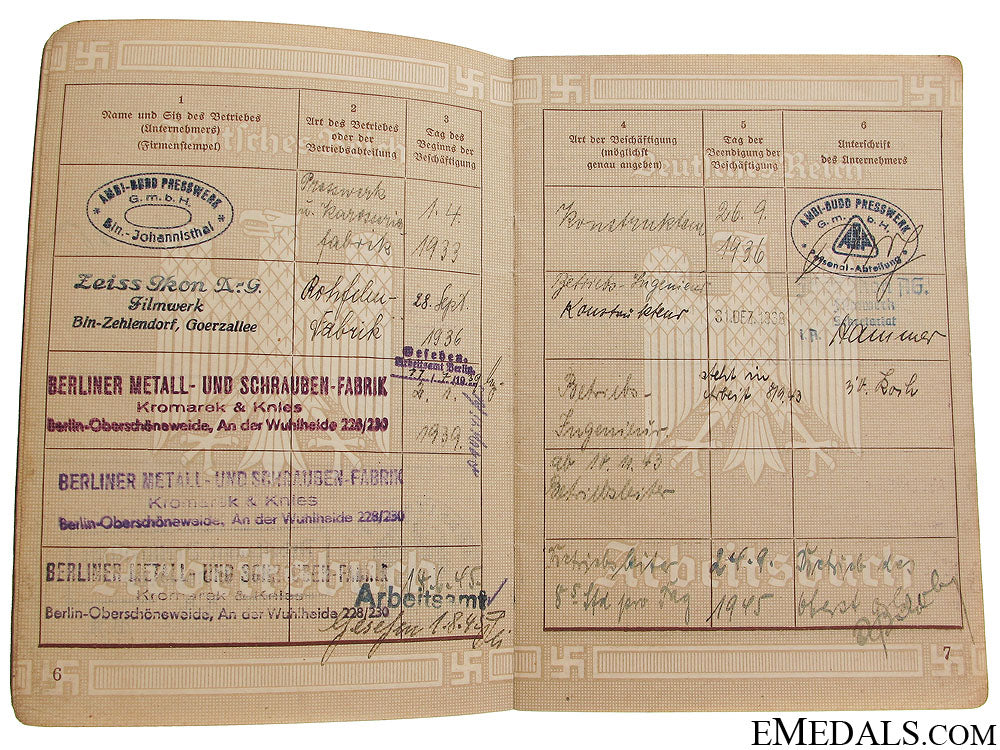 1
Name und Sitz des Betriebes
(Unternehmers)
(Firmenstempel)
2
Art des Betriebes
oder der
Betriebsabteilung
3
Tag des
Beginns der
Beschäftigung
AMBI-BUDD PRESSWERK
G.m.b.H.
Bln.-Johannisthal
Presswerk
u. Karosserie
fabrik
1.4.
1933
Zeiss Ikon A.-G.
Filmwerk
Bln-Zehlendorf, Goerzallee
Rohfilm-
Fabrik
28. Sept.
1936
Gesehen.
Arbeitsamt Berlin
BERLINER METALL- UND SCHRAUBEN-FABRIK
Kromarek & Knies
Berlin-Oberschöneweide, An der Wuhlheide 228/230
1939.
BERLINER METALL- UND SCHRAUBEN-FABRIK
Kromarek & Knies
Berlin-Oberschöneweide, An der Wuhlheide 228/230
BERLINER METALL- UND SCHRAUBEN-FABRIK
Kromarek & Knies
Berlin-Oberschöneweide, An der Wuhlheide 228/230
18.6.45.
Arbeitsamt
Gesehen 1.8.45
6
Deutsches Reich
Arbeitsbuch
4
Art der Beschäftigung
(möglichst
genau angeben)
5
Tag der
Beendigung der
Beschäftigung
6
Unterschrift
des Unternehmers
Konstrukteur
26.9.
1936
AMBI-BUDD PRESSWERK
G.m.b.H.
ABP
Personal-Abteilung
Betriebs-Ingenieur
Konstrukteur
31.DEZ.1938
AG.
Sekretariat
i.A. Hammer
Betriebs-
Ingenieur.
steht in
Arbeit 8/9.43
ab 10.11.43
Betriebsleiter
Betriebsleiter
8 Std pro Tag
24.9.
1945
Betrieb des
7
Deutsches Reich
Arbeitsbuch
EMEDALS.COM